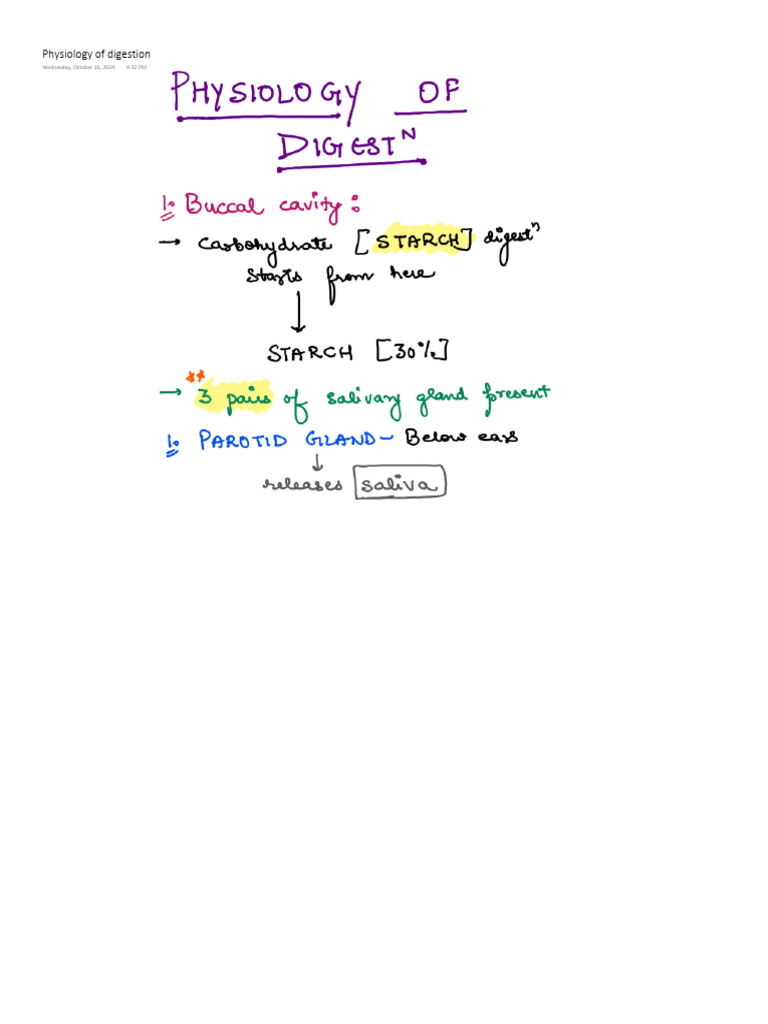 Physiology of digestion
Wednesday, October 16, 2024 4:32 PM
PHYSIOLOGY OF
DIGESTᴺ
1. Buccal cavity :
→ Carbohydrate [STARCH] digestⁿ
starts from here
↓
STARCH [30%]
**
→ 3 pairs of salivary gland present
1. PAROTID GLAND - Below ears
↓
releases saliva